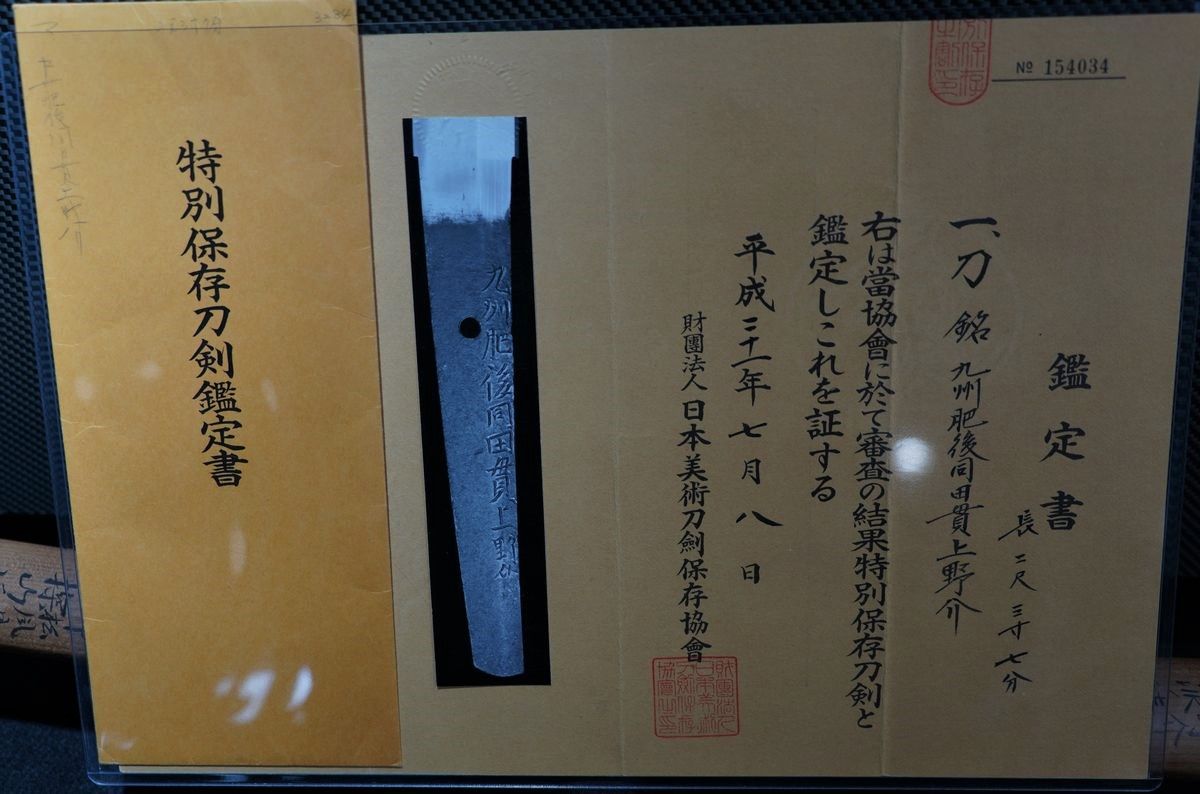 № 154034
鑑定書
長 二尺 三寸 七分
一、刀 銘 九州肥後同田貫上野介
右は當協會に於て審査の結果特別保存刀剣と
鑑定しこれを証する
平成二十一年七月八日
財團法人日本美術刀劍保存協會
九州肥後同田貫上野介
特別保存刀剣鑑定書
上 肥後同田貫上野介